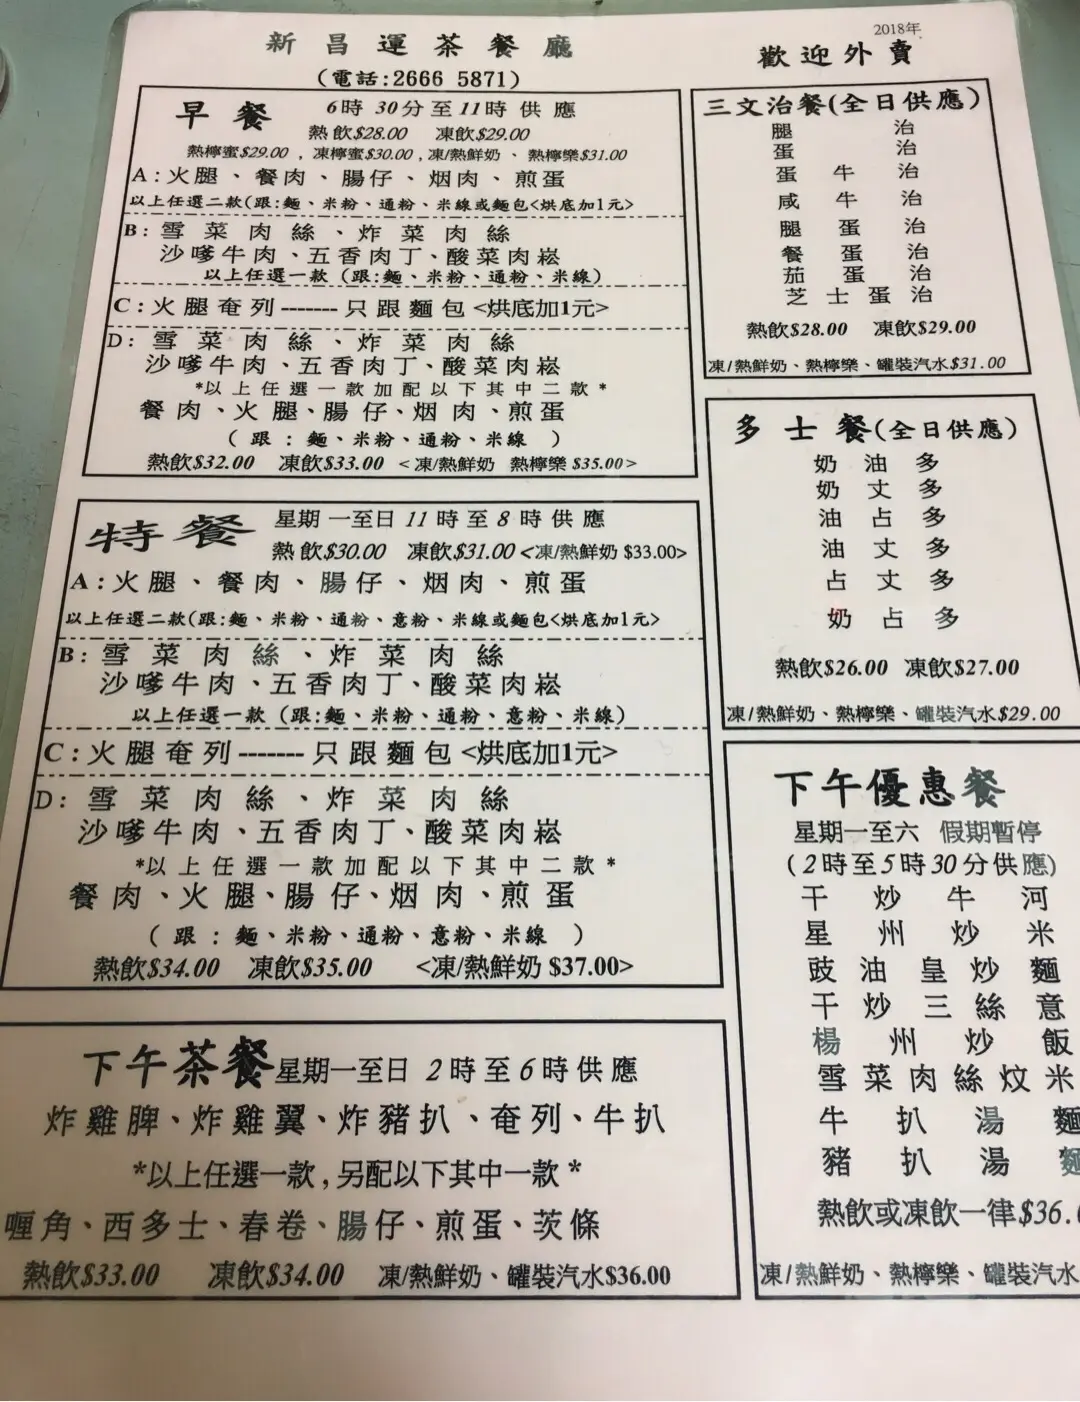 2018年
新昌運茶餐廳
歡迎外賣
(電話:2666 5871)
早餐 6時30分至11時供應
熱飲$28.00 凍飲$29.00
熱檸蜜$29.00,凍檸蜜$30.00,凍/熱鮮奶、熱檸樂$31.00
A:火腿、餐肉、腸仔、烟肉、煎蛋
以上任選二款(跟:麵、米粉、通粉、米線或麵包<烘底加1元>
B:雪菜肉絲、炸菜肉絲
沙嗲牛肉、五香肉丁、酸菜肉崧
以上任選一款(跟:麵、米粉、通粉、米線)
C:火腿奄列-------只跟麵包<烘底加1元>
D:雪菜肉絲、炸菜肉絲
沙嗲牛肉、五香肉丁、酸菜肉崧
*以上任選一款加配以下其中二款*
餐肉、火腿、腸仔、烟肉、煎蛋
(跟:麵、米粉、通粉、米線)
熱飲$32.00 凍飲$33.00 <凍/熱鮮奶 熱檸樂$35.00>
特餐 星期一至日11時至8時供應
熱飲$30.00 凍飲$31.00<凍/熱鮮奶 $33.00>
A:火腿、餐肉、腸仔、烟肉、煎蛋
以上任選二款(跟:麵、米粉、通粉、意粉、米線或麵包<烘底加1元>
B:雪菜肉絲、炸菜肉絲
沙嗲牛肉、五香肉丁、酸菜肉崧
以上任選一款(跟:麵、米粉、通粉、意粉、米線)
C:火腿奄列-------只跟麵包<烘底加1元>
D:雪菜肉絲、炸菜肉絲
沙嗲牛肉、五香肉丁、酸菜肉崧
*以上任選一款加配以下其中二款*
餐肉、火腿、腸仔、烟肉、煎蛋
(跟:麵、米粉、通粉、意粉、米線)
熱飲$34.00 凍飲$35.00 <凍/熱鮮奶 $37.00>
下午茶餐 星期一至日 2時至6時供應
炸雞脾、炸雞翼、炸豬扒、奄列、牛扒
*以上任選一款,另配以下其中一款*
喱角、西多士、春卷、腸仔、煎蛋、茨條
熱飲$33.00 凍飲$34.00 凍/熱鮮奶、罐裝汽水$36.00
三文治餐(全日供應)
腿治
蛋治
蛋牛治
咸牛治
腿蛋治
餐蛋治
茄蛋治
芝士蛋治
熱飲$28.00 凍飲$29.00
凍/熱鮮奶、熱檸樂、罐裝汽水$31.00
多士餐(全日供應)
奶油多
奶丈多
油占多
油丈多
占丈多
奶占多
熱飲$26.00 凍飲$27.00
凍/熱鮮奶、熱檸樂、罐裝汽水$29.00
下午優惠餐
星期一至六 假期暫停
(2時至5時30分供應)
干炒牛河
星州炒米
豉油皇炒麵
干炒三絲意
楊州炒飯
雪菜肉絲炆米
牛扒湯麵
豬扒湯麵
熱飲或凍飲一律$36.0
凍/熱鮮奶、熱檸樂、罐裝汽水